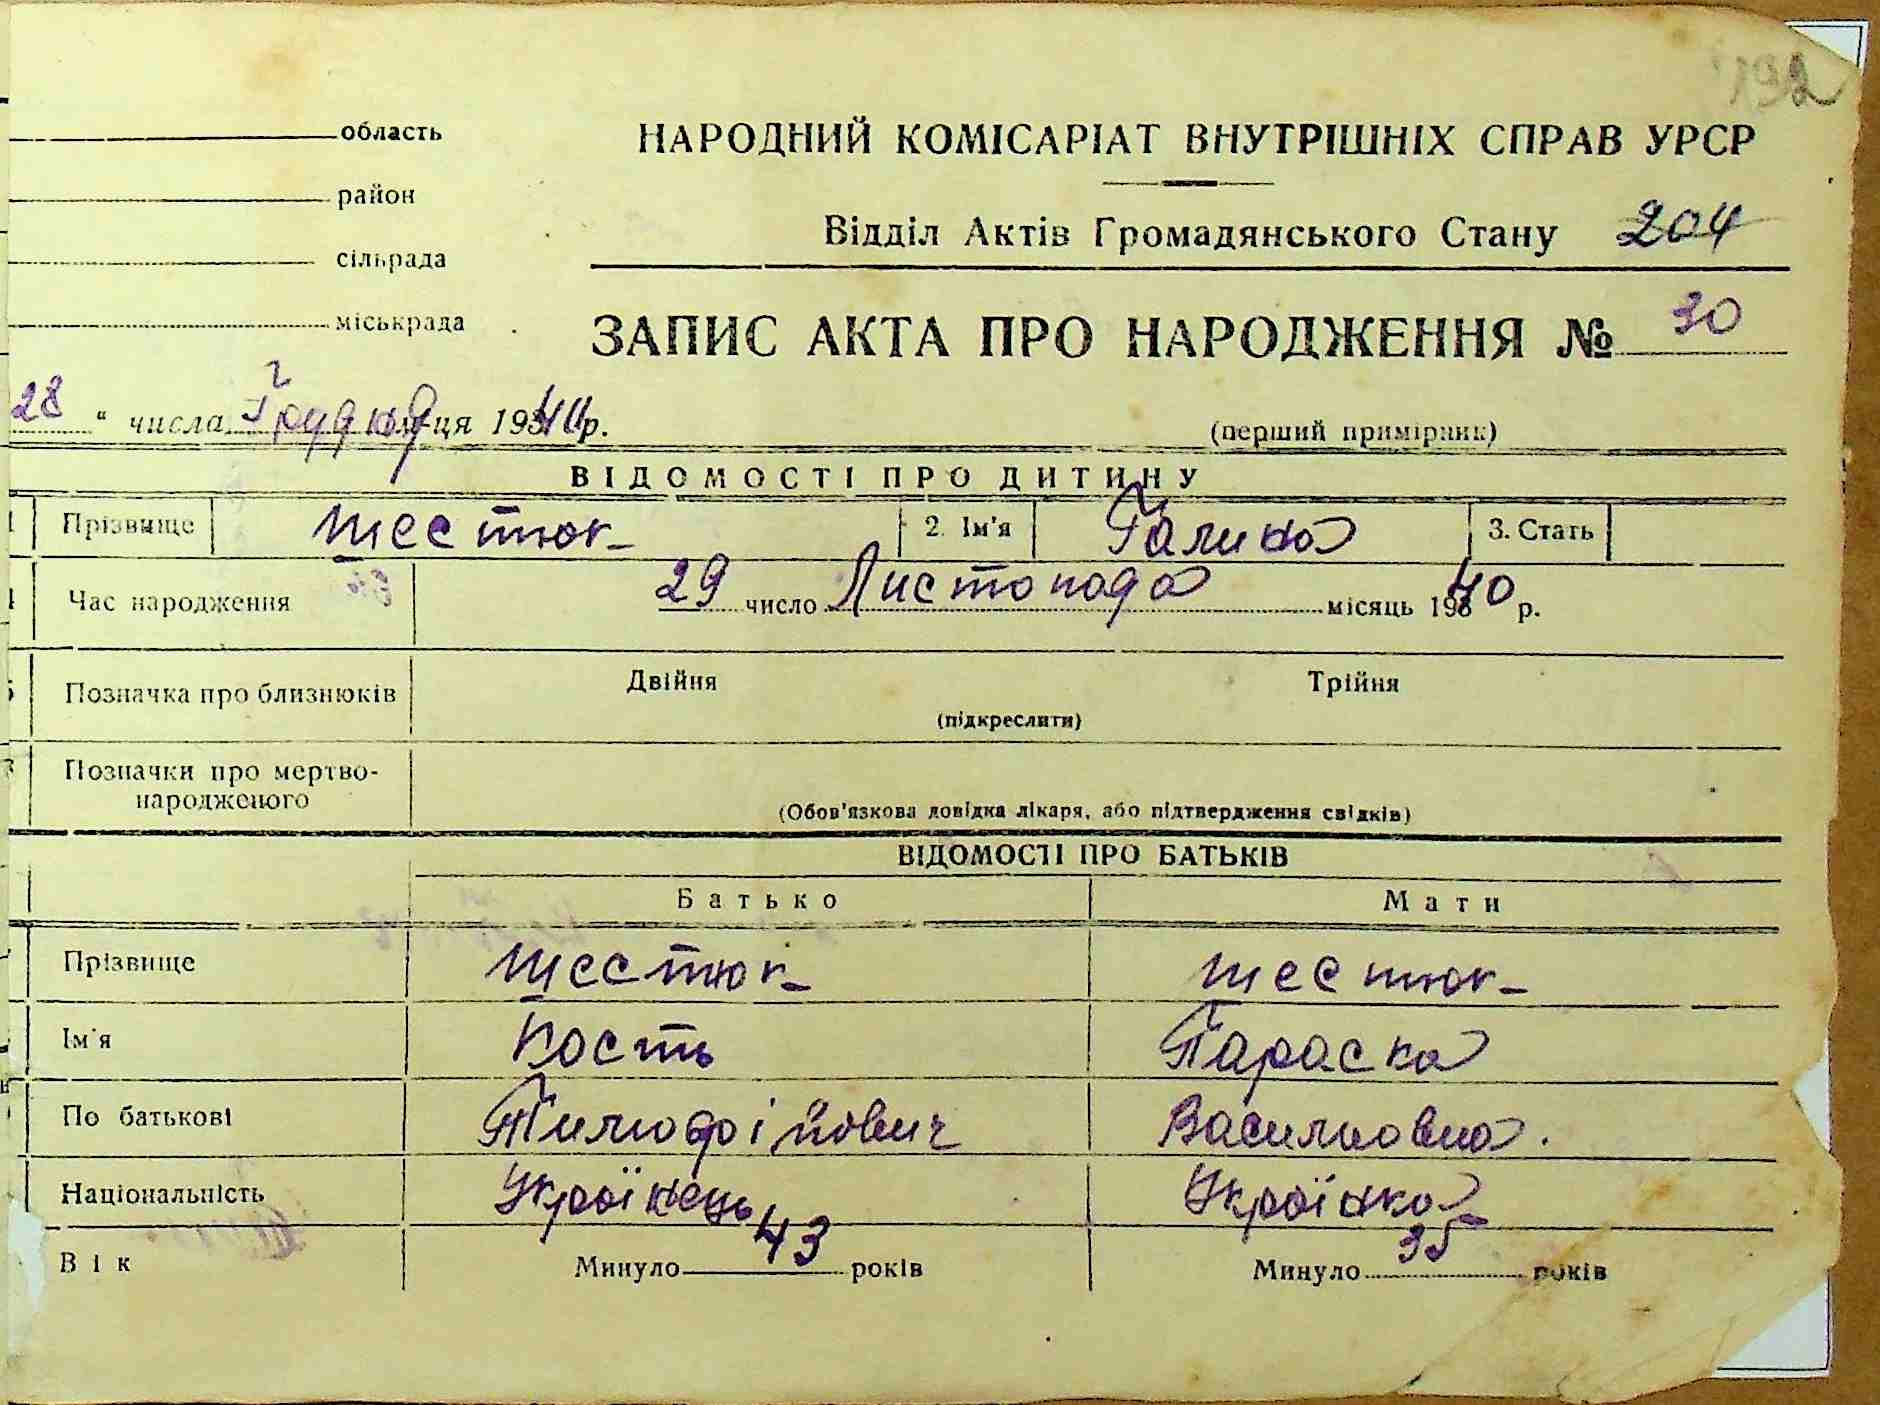 192
область
НАРОДНИЙ КОМІСАРІАТ ВНУТРІШНІХ СПРАВ УРСР
район
Відділ Актів Громадянського Стану 204
сільрада
міськрада
ЗАПИС АКТА ПРО НАРОДЖЕННЯ № 30
28 " числа Грудня м-ця 1940 р.
(перший примірник)
ВІДОМОСТІ ПРО ДИТИНУ
1 Прізвище Шестюк 2. Ім'я Галина 3. Стать
4 Час народження 29 число Листопада місяць 1940 р.
5 Позначка про близнюків Двійня Трійня
(підкреслити)
Позначки про мертво-
народженого
(Обов'язкова довідка лікаря, або підтвердження свідків)
ВІДОМОСТІ ПРО БАТЬКІВ
Батько Мати
Прізвище Шестюк Шестюк
Ім'я Кость Параска
По батькові Тимофійович Васильовна.
Національність Українець Українка
Вік Минуло 43 років Минуло 35 років